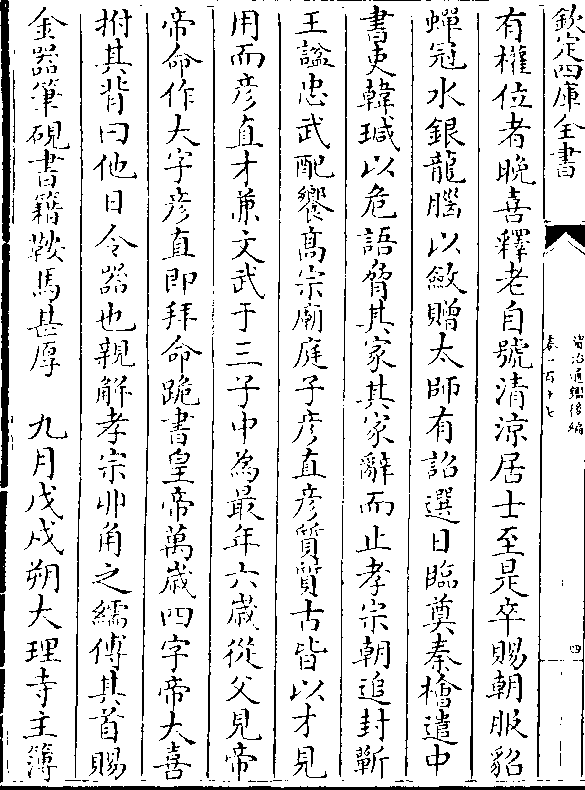 欽定四庫全書
資治通鑑後編
卷一百十七
四
有權位者晚喜釋老自號清涼居士至是卒賜朝服貂
蟬冠水銀龍腦以斂贈太師有詔選日臨奠秦檜遣中
書吏韓瑊以危語脅其家其家辭而止孝宗朝追封蘄
王諡忠武配饗高宗廟庭子彦直彦質彦古皆以才見
用而彦直才兼文武于三子中為最年六歲從父見帝
帝命作大字彦直即拜命跪書皇帝萬歲四字帝大喜
拊其背曰他日令器也親解孝宗丱角之繻傅其首賜
金器筆硯書籍鞍馬甚厚　九月戊戌朔大理寺主簿